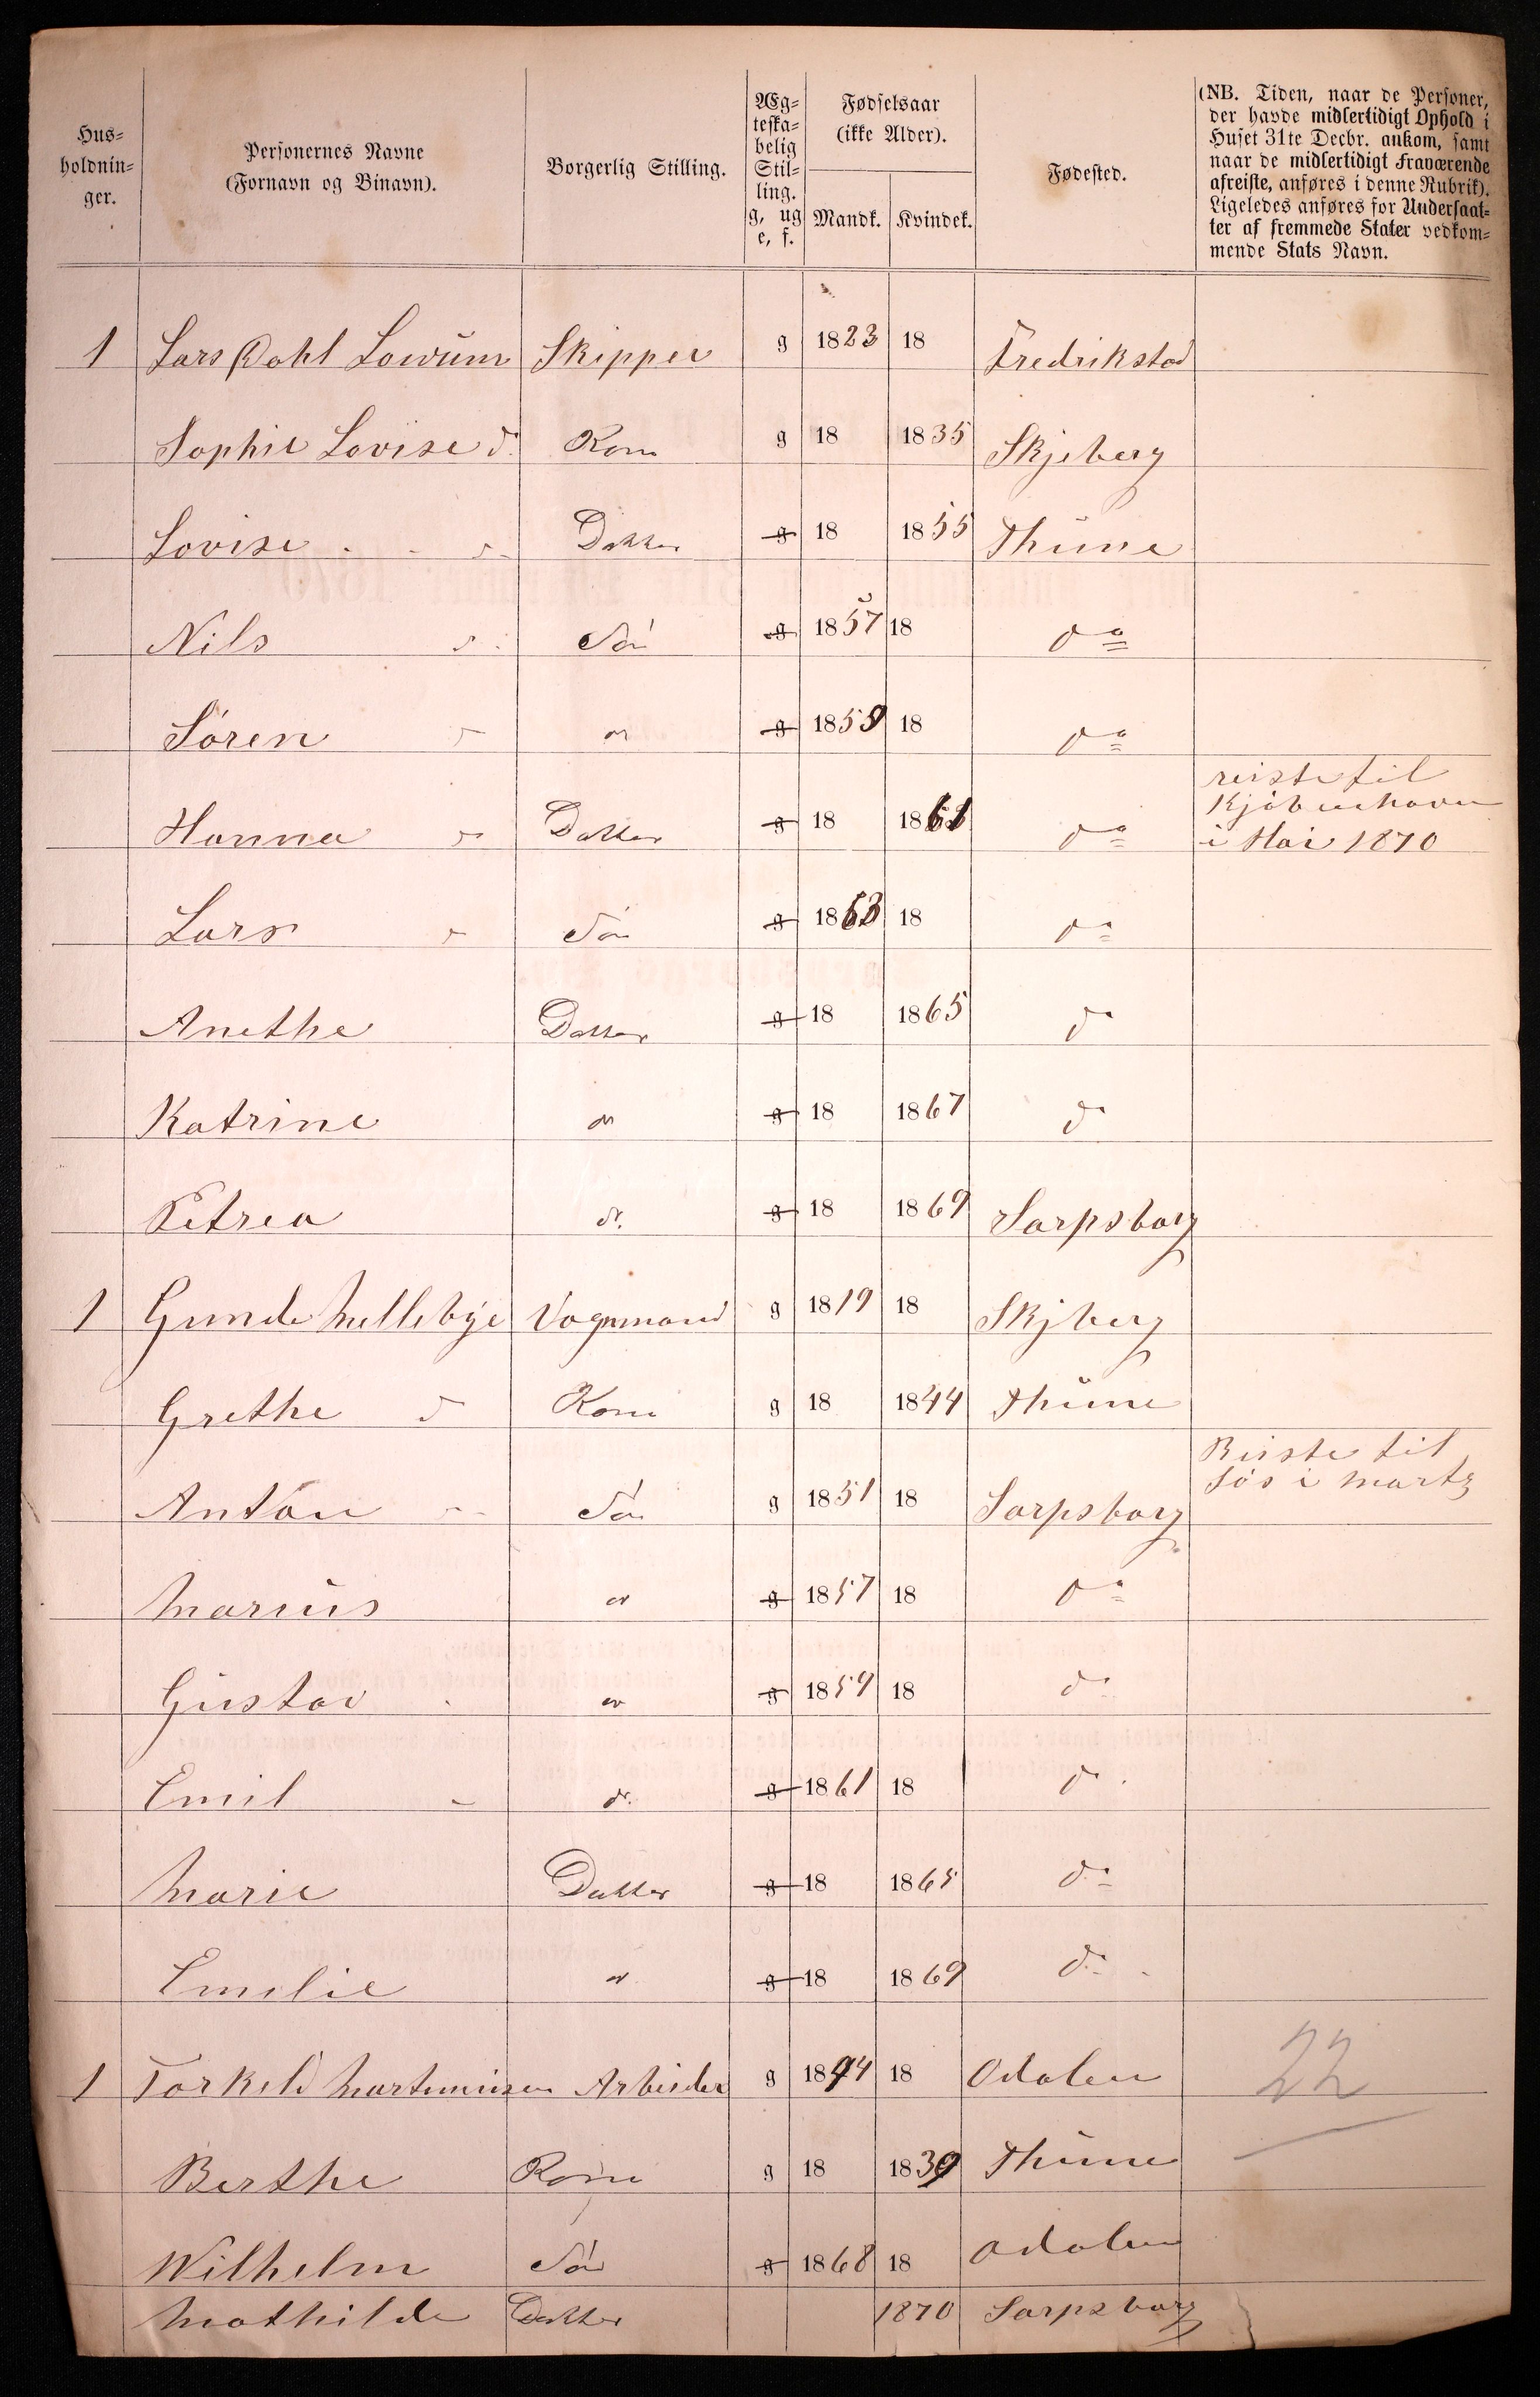 Hus=
holdnin=
ger.
Personernes Navne
(Fornavn og Binavn).
Borgerlig Stilling.
Æg=
teska=
belig
Stil=
ling.
g, ug
e, f.
Fødselsaar
(ikke Alder).
Mandk. Kvindek.
Fødested.
(NB. Tiden, naar de Personer,
der havde midlertidigt Ophold i
Huset 31te Decbr. ankom, samt
naar de midlertidigt Fraværende
afreiste, anføres i denne Rubrik).
Ligeledes anføres for Undersaat=
ter af fremmede Stater vedkom=
mende Stats Navn.
1 Lars Dahl Skipper g 1823 18 Fredrikstad
Sophie Lovise d. Kone g 18 1835 Skjeberg
Lovise d Datter g 18 1855 Thune
Nils d Søn g 1857 18 do
Søren d d g 1859 18 do
reiste til
Kjøbenhavn
Hanna d Datter g 18 1861 do i Mai 1870
Lars d Søn g 1863 18 do
Anethe Datter g 18 1865 do
Katrine d g 18 1867 do
Petrea d. g 18 1869 Sarpsborg
1 Gunde Hellebye Vognmand g 1819 18 Skjberg
Grethe d Kone g 18 1844 Thune
Reiste til
Søs i Martz
Anton d Søn g 1851 18 Sarpsborg
Marius d g 1857 18 do
Gustav d g 1859 18 do
Emil d. g 1861 18 do
Marie Datter g 18 1865 do
Emelie d g 18 1869 do
1 Torkeld Martiniusen Arbeider g 1844 18 Odalen 22
Berthe Kone g 18 1839 Thune
Wilhelm Søn g 1868 18 Odalen
Mathilde Datter 1870 Sarpsborg